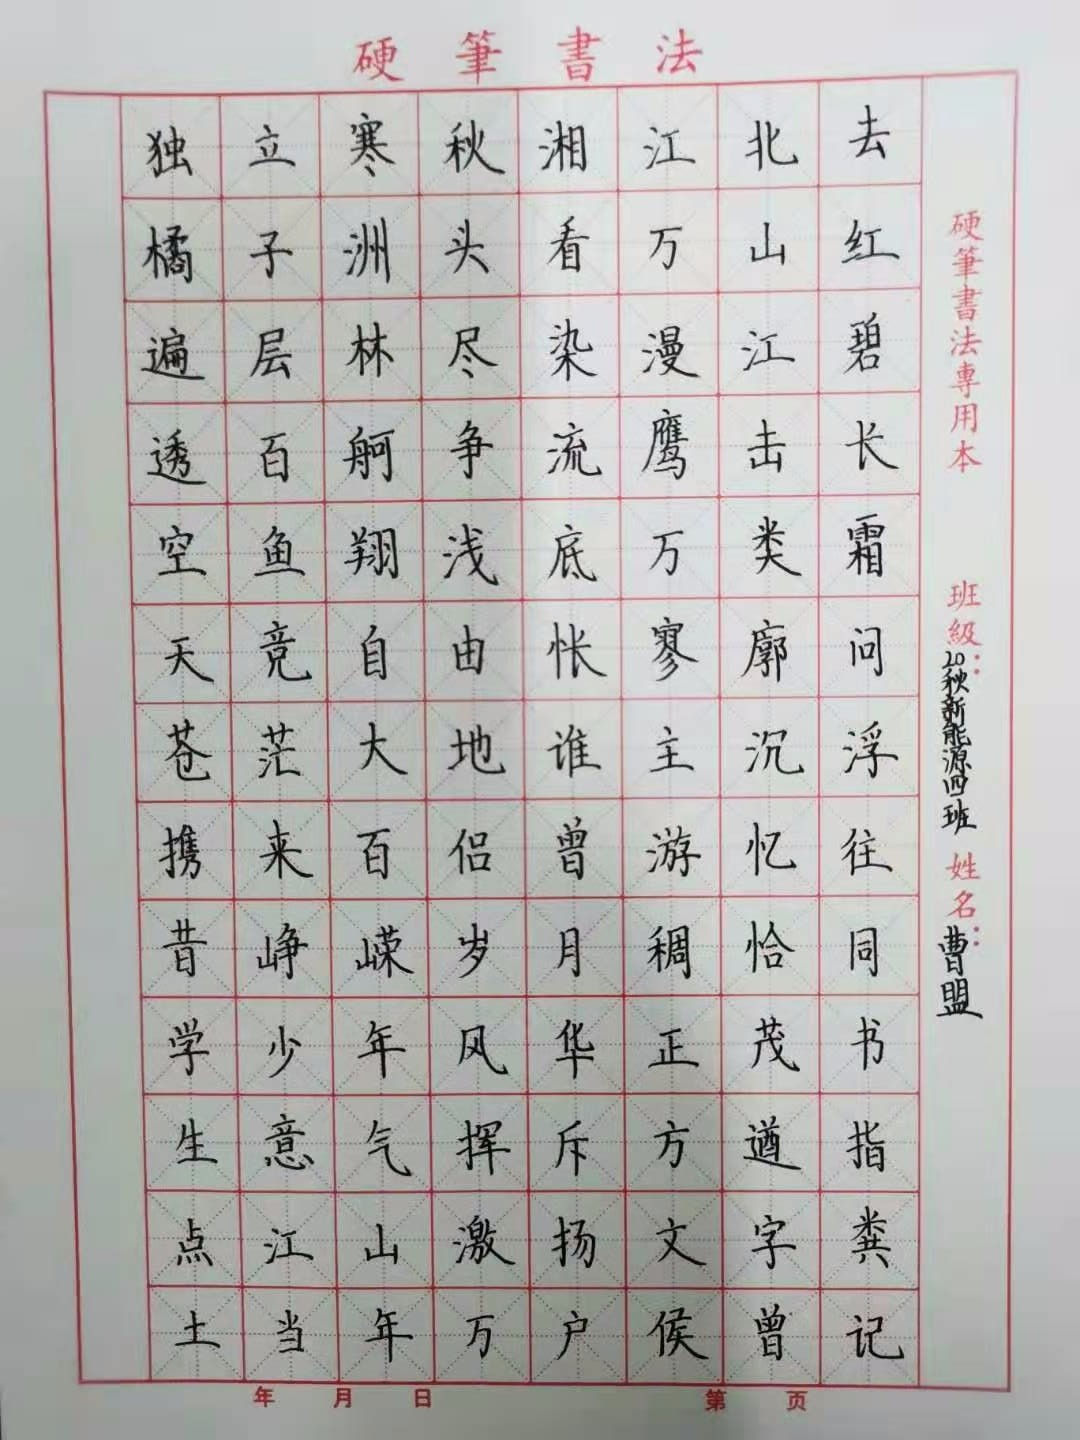 硬筆書法
独立寒秋湘江北去
橘子洲头看万山红
遍层林尽染漫江碧
透百舸争流鹰击长
空鱼翔浅底万类霜
天竞自由怅寥廓问
苍茫大地谁主沉浮
携来百侣曾游忆往
昔峥嵘岁月稠恰同
学少年风华正茂书
生意气挥斥方遒指
点江山激扬文字粪
土当年万户侯曾记
硬筆書法專用本
班級：20秋新能源四班
姓名：曹盟
年 月 日
第 页